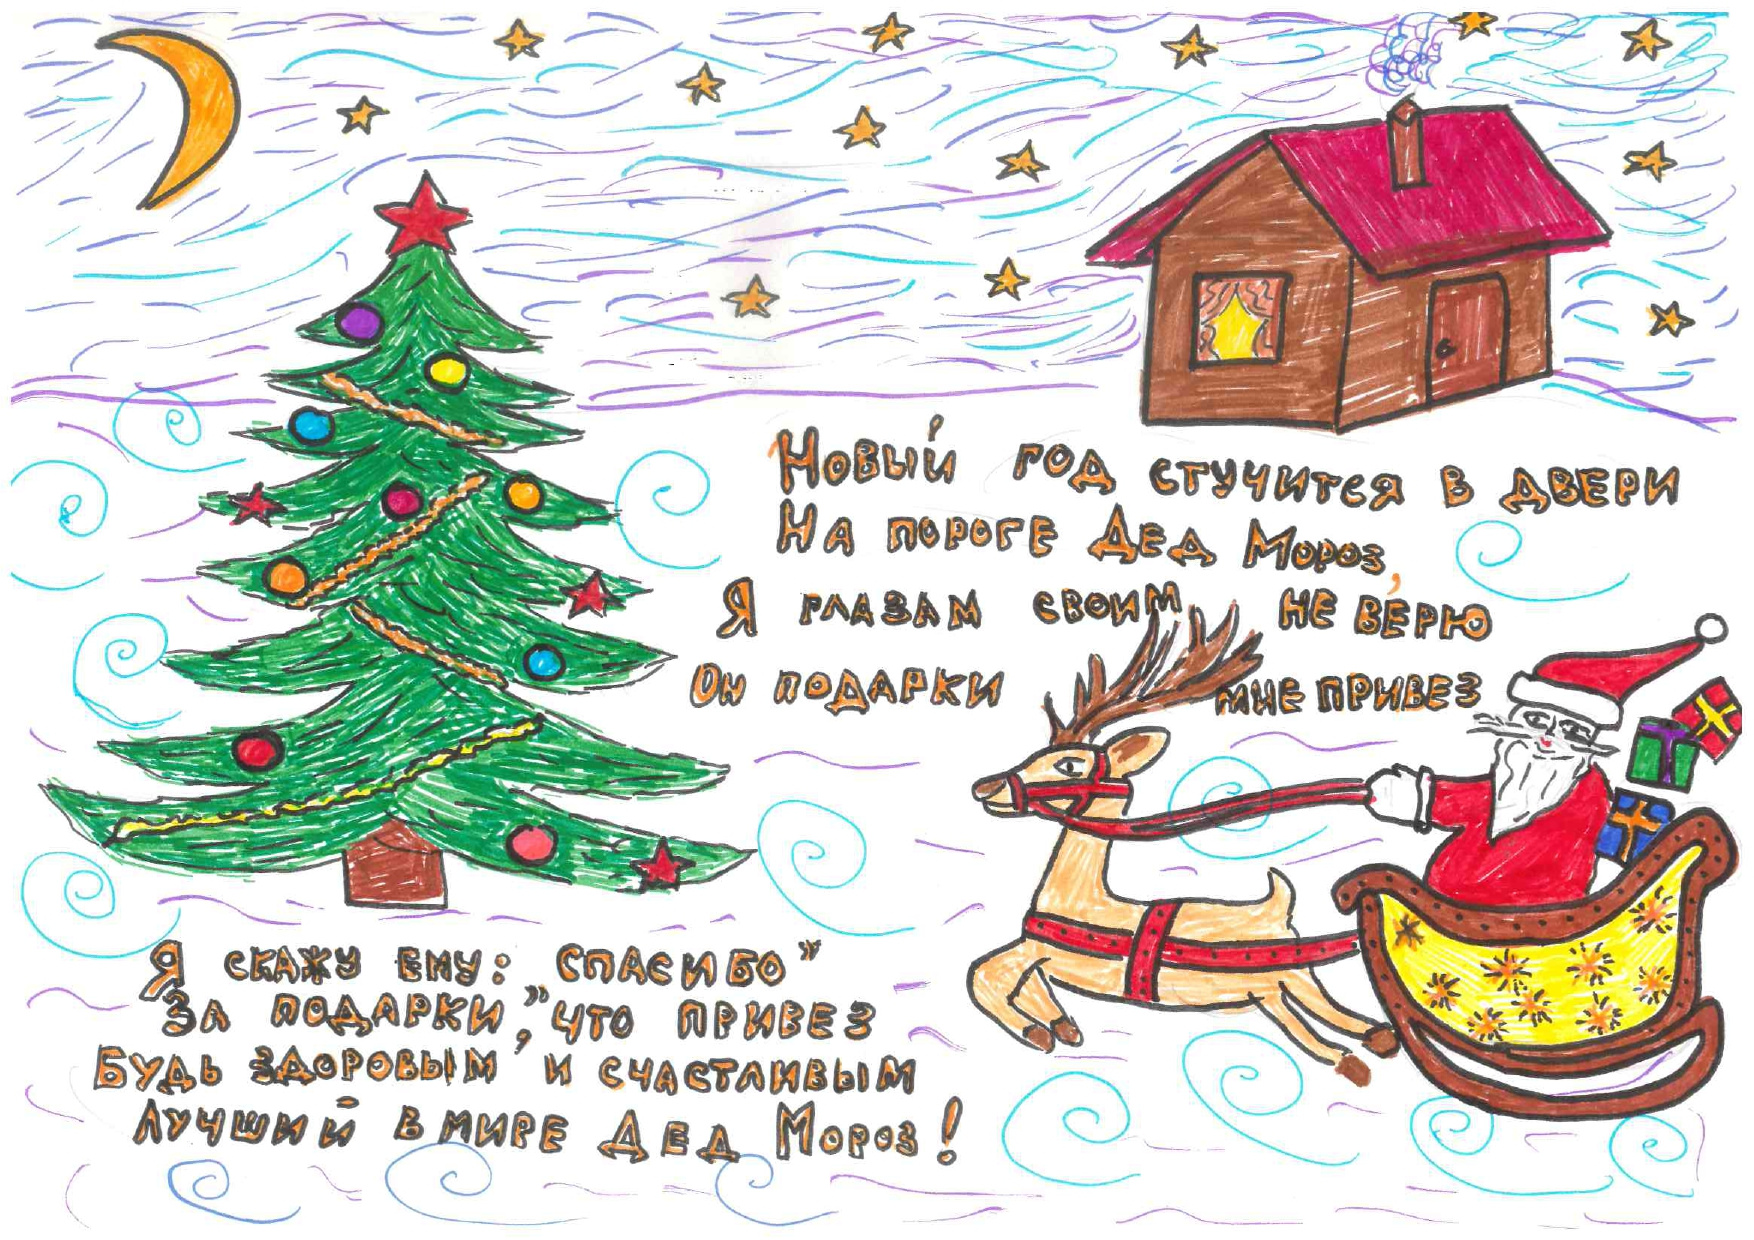 Новый год стучится в двери
На пороге Дед Мороз,
Я глазам своим не верю
Он подарки мне привез
Я скажу ему: "спасибо"
За подарки,", что привез
Будь здоровым, и счастливым
Лучший в мире Дед Мороз!